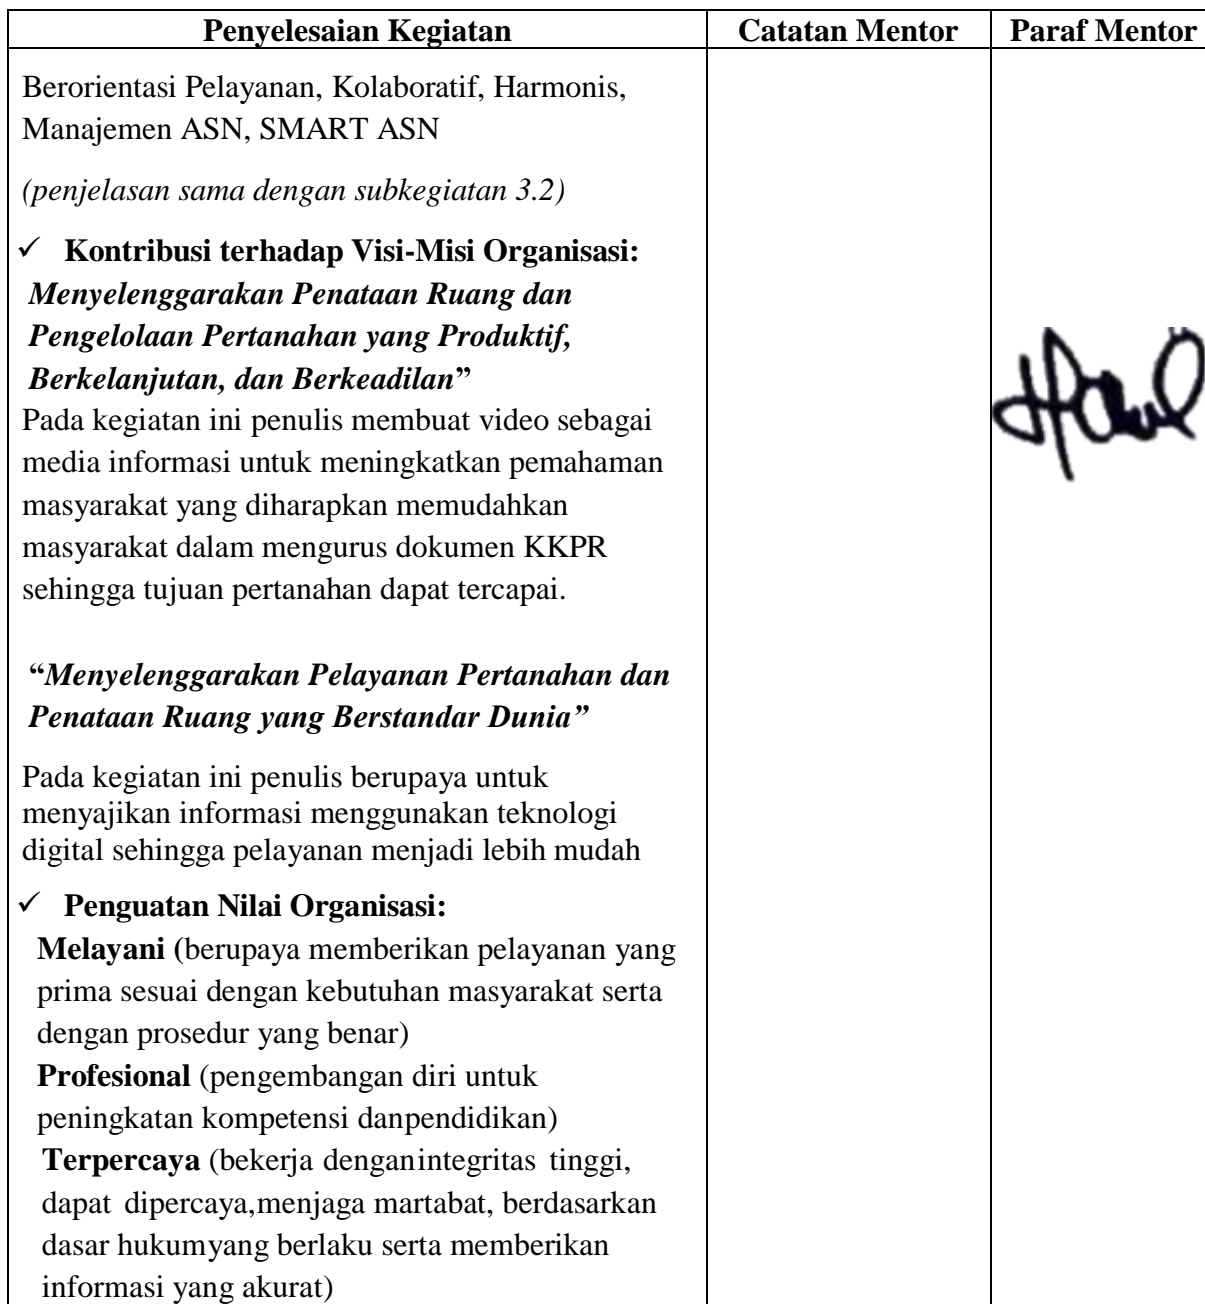 Penyelesaian Kegiatan Catatan Mentor Paraf Mentor
Berorientasi Pelayanan, Kolaboratif, Harmonis,
Manajemen ASN, SMART ASN
(penjelasan sama dengan subkegiatan 3.2)
✓ Kontribusi terhadap Visi-Misi Organisasi:
Menyelenggarakan Penataan Ruang dan
Pengelolaan Pertanahan yang Produktif,
Berkelanjutan, dan Berkeadilan”
Pada kegiatan ini penulis membuat video sebagai
media informasi untuk meningkatkan pemahaman
masyarakat yang diharapkan memudahkan
masyarakat dalam mengurus dokumen KKPR
sehingga tujuan pertanahan dapat tercapai.
“Menyelenggarakan Pelayanan Pertanahan dan
Penataan Ruang yang Berstandar Dunia”
Pada kegiatan ini penulis berupaya untuk
menyajikan informasi menggunakan teknologi
digital sehingga pelayanan menjadi lebih mudah
✓ Penguatan Nilai Organisasi:
Melayani (berupaya memberikan pelayanan yang
prima sesuai dengan kebutuhan masyarakat serta
dengan prosedur yang benar)
Profesional (pengembangan diri untuk
peningkatan kompetensi danpendidikan)
Terpercaya (bekerja denganintegritas tinggi,
dapat dipercaya,menjaga martabat, berdasarkan
dasar hukumyang berlaku serta memberikan
informasi yang akurat)